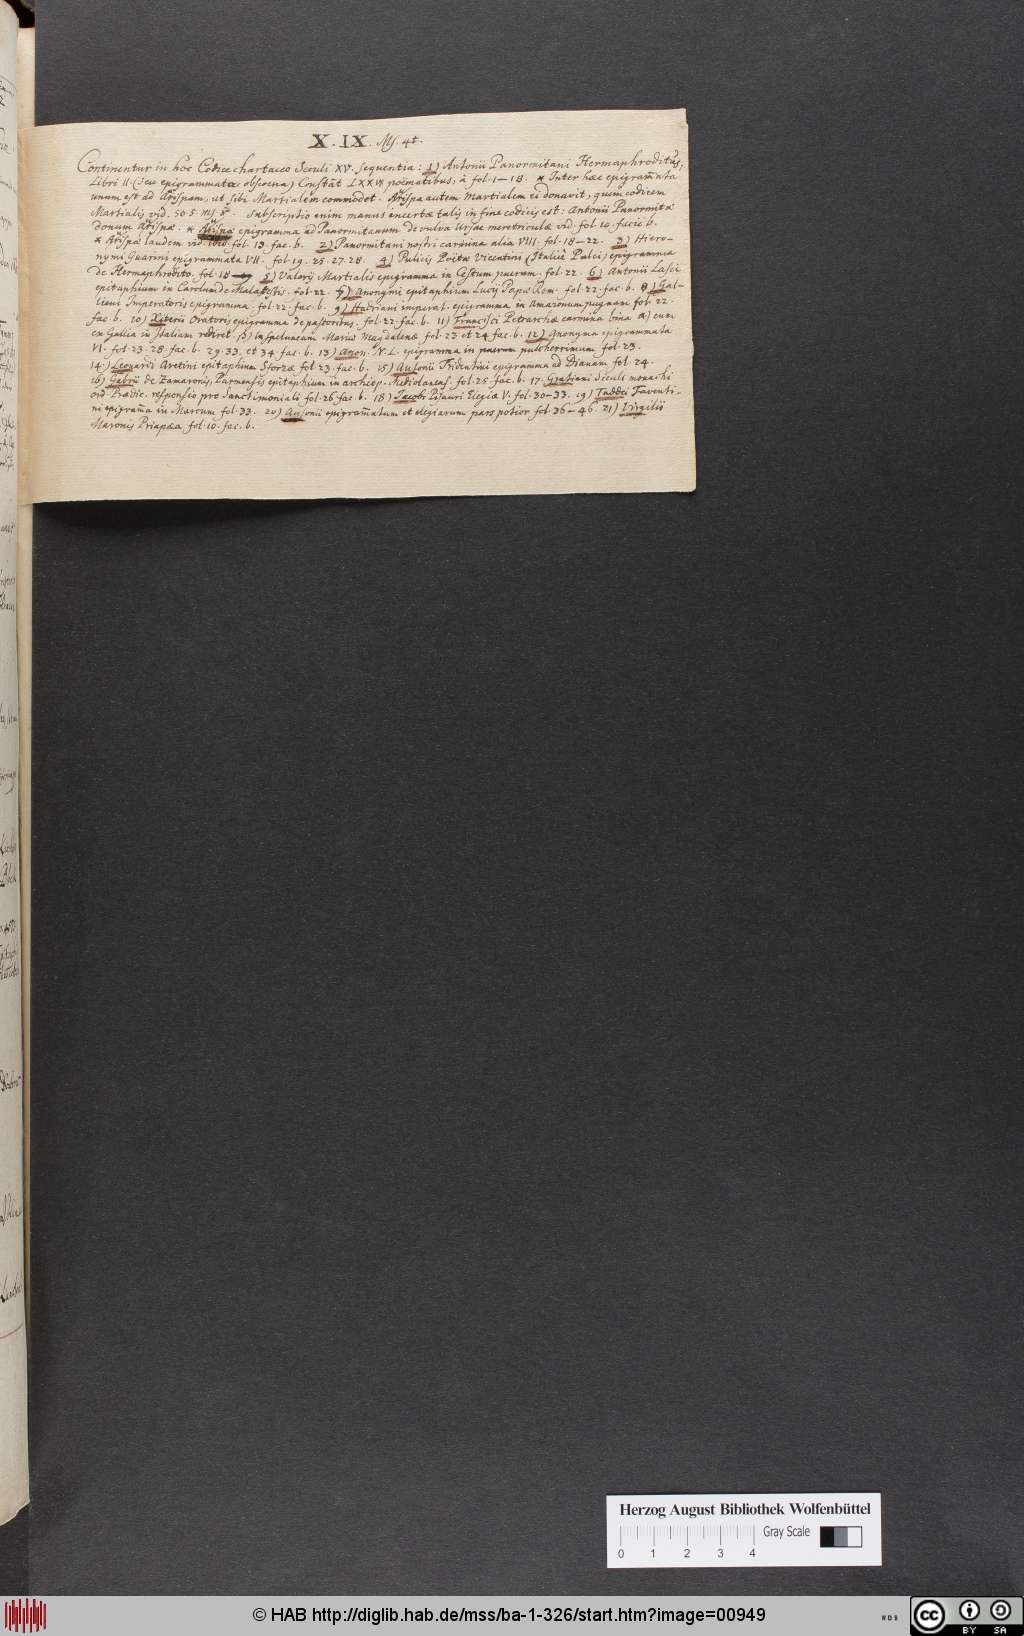 X. IX. Ms. 4t.
Continentur in hoc Codice chartaceo Seculi XV. sequentia: 1) Antonii Panormitani Hermaphroditus,
Libri II. (seu epigrammata obscena) Constãt LXXVI poëmatibus, à fol. 1–18. * Inter hæc epigram̃ata
unum est ad Arispam, ut sibi Martialem commodet. Arispa autem Martialem ei donavit, quem codicem
Martialis vid. 50. 5. Ms. Subscriptio enim manus encertæ talis in fine codicis est: Antonii Panormitæ
donum Arispæ. * Arispa epigramma ad Panormitanum de vulva Ursae meretriculæ vid. fol. 10. facie b.
* Arispæ laudem vid. ibid. fol. 13. fac. b. 2) Panormitani nostri carmina alia VIII. fol. 18–22. 3) Hiero-
nymi Guarini epigrammata VII. fol. 19. 25. 27. 28. 4) Pulicis Poëtæ Vicentini (Italicè Pulci) epigrammia
de Hermaphrodito. fol. 18 5) Valerij Martialis epigramma in Cestum puerum. fol. 22. 6) Antonii Lasci
epitaphium in Carolum de Malatestis. fol. 22. 7) Anonymi epitaphium Lucij Papæ Rom. fol. 22. fac. b. 8) Gal-
lieni Imperatoris epigramma. fol. 22. fac. b. 9) Hadriani imperat. epigramma in Amazonum pugnam fol. 22.
fac. b. 10) Oratoris epigramma de pastoribus. fol. 22. fac. b. 11) Francisci Petrarchæ carmina bina α) cum
ex Gallia in Italiam rediret β) in speluncam Mariæ Magdalenæ fol. 23 et 24 fac. b. 12) Anonyma epigrammata
VI. fol. 23. 28. fac. b. 29. 33. et 34. fac. b. 13) Anon. N. L. epigramma in puerum pulcherrimum fol. 23.
14.) Leonardi Aretini epitaphium Sforzæ fol. 23. fac. b. 15) Ausonii Tridentini epigramma ad Dianam fol. 24.
16) Gabrii de Zamaronis, Parmensis epitaphium in archiep. Mediolanens. fol. 25 fac. b. 17. Gratiani Seculi monachi
ord. Prædic. responsio pro Sanctimoniali fol. 26 fac. b. 18) Jacobi Pisauri Elegiæ V. fol. 30–33. 19) Taddei Faventi-
ni epigram̃a in Marcum fol. 33. 20) Ausonii epigram̃atum et elegiarum pars potior fol. 36–46. 21) Virgilii
Maronis Priapæa fol. 10. fac. b.
Herzog August Bibliothek Wolfenbüttel
Gray Scale
0 1 2 3 4
© HAB http://diglib.hab.de/mss/ba-1-326/start.htm?image=00949
WDB
cc BY SA